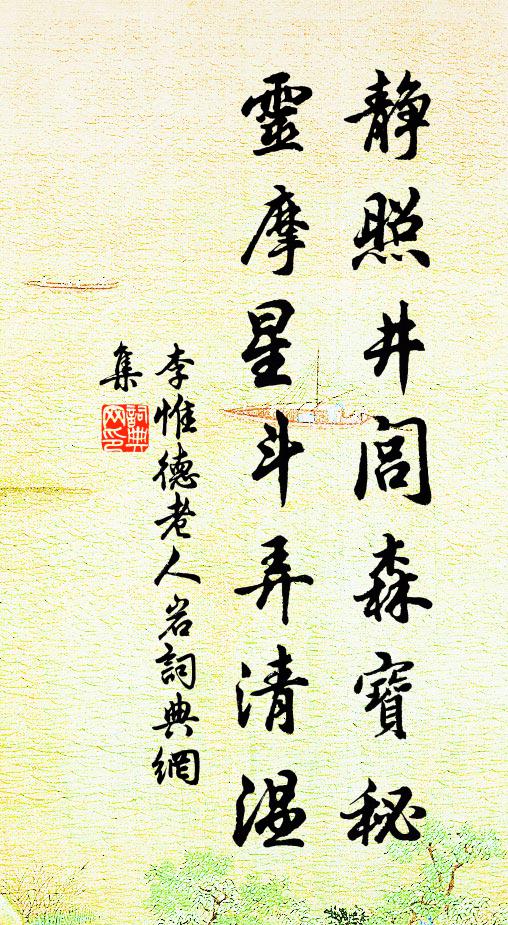 靜照井閭森寶秘
靈摩星斗弄清溫
李惟德老人岩詞典網
集
詞典
网印